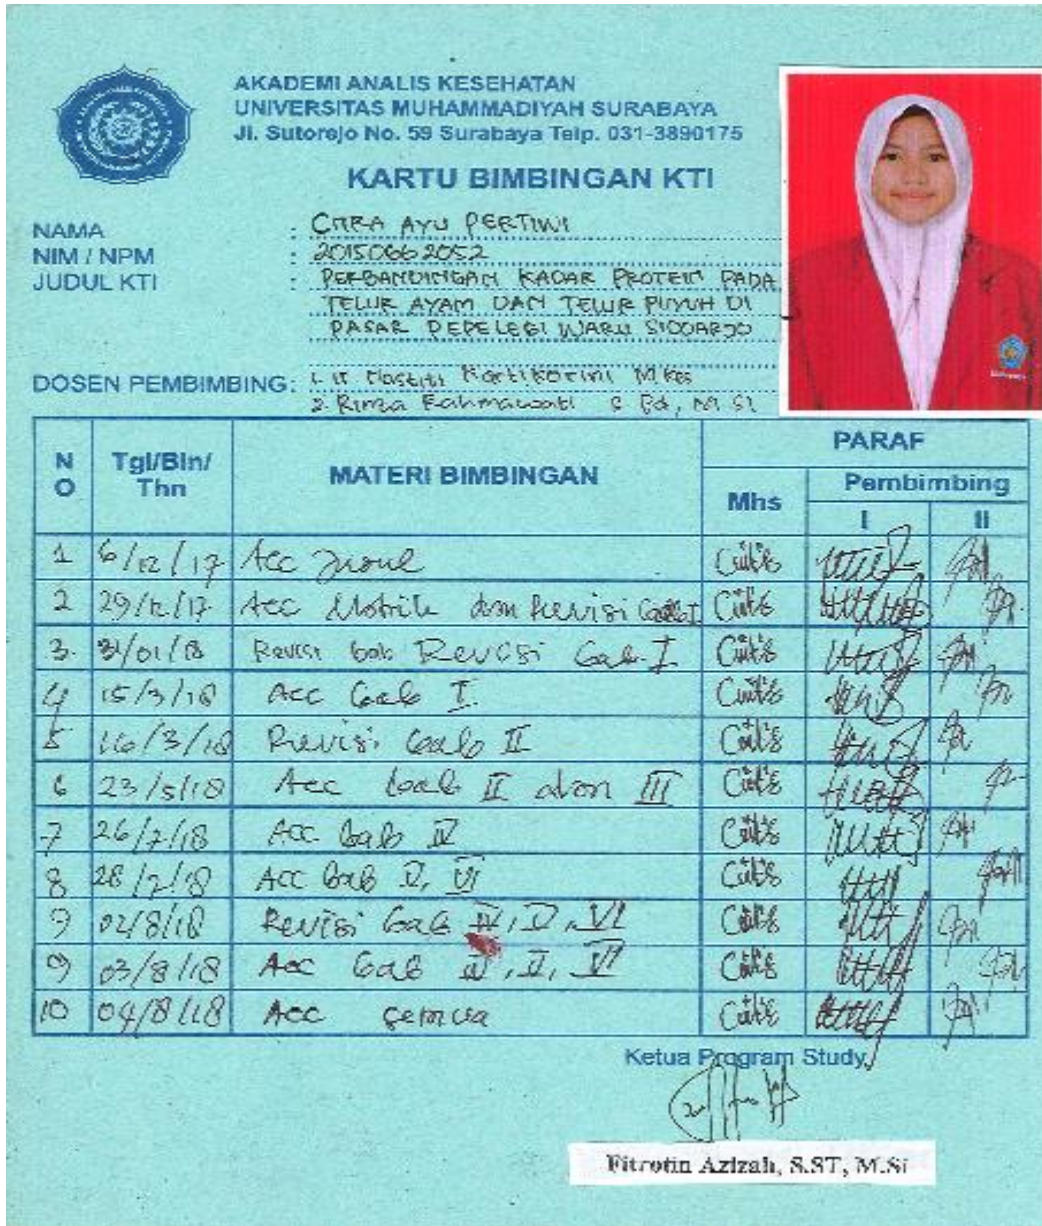 AKADEMI ANALIS KESEHATAN
UNIVERSITAS MUHAMMADIYAH SURABAYA
Jl. Sutorejo No. 59 Surabaya Telp. 031-3890175
KARTU BIMBINGAN KTI
NAMA : CITRA AYU PERTIWI
NIM / NPM : 20150662052
JUDUL KTI : PERBANDINGAN KADAR PROTEIN PADA
TELUR AYAM DAN TELUR PUYUH DI
PASAR DEPELEGI WARU SIDOARJO
DOSEN PEMBIMBING: 1. Ir M.Kes
2. Rinza Rahmawati S.Pd, M.Si
NO Tgl/Bln/Thn MATERI BIMBINGAN PARAF
Mhs Pembimbing
I II
1 6/12/17 Acc Judul
2 29/12/17 Acc Matrik dan Revisi bab I
3. 31/01/18 Revisi bab Revisi bab I
4 15/3/18 Acc bab I
5 16/3/18 Revisi bab II
6 23/5/18 Acc bab II dan III
7 26/7/18 Acc bab IV
8 28/7/18 Acc bab V, VI
9 02/8/18 Revisi bab IV, V, VI
9 03/8/18 Acc bab IV, V, VI
10 04/8/18 Acc semua
Ketua Program Study,
Fitrotin Azizah, S.ST, M.Si